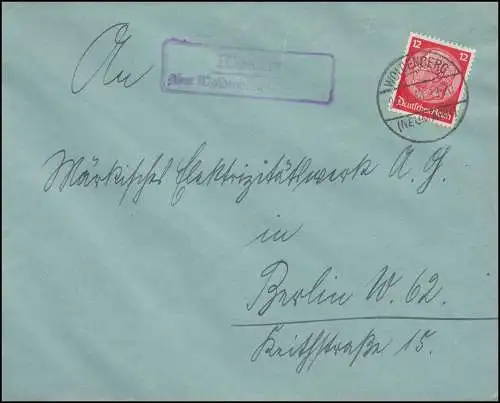 An
über Woldenberg
12 12
Deutsches Reich
WOLDENBERG
(NEUM
Märkisches Elektrizitätswerk A. G.
in
Berlin W. 62.
Keithstraße 15.